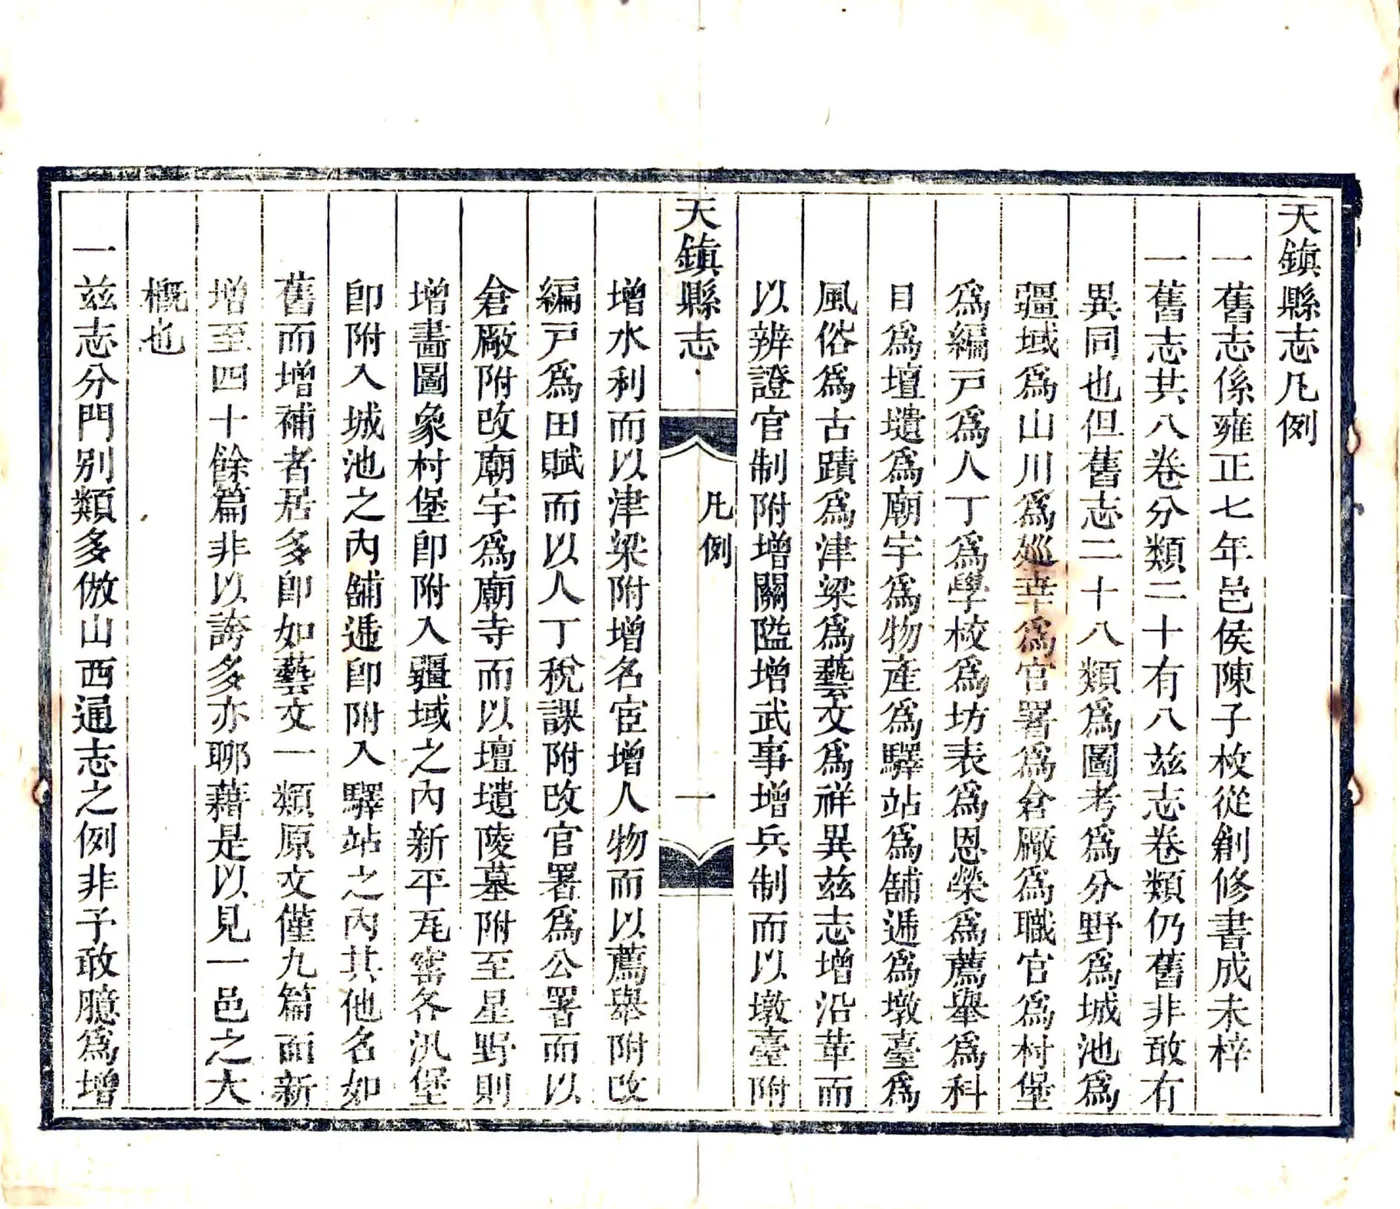 天鎮縣志凡例
一舊志係雍正七年邑侯陳子枚從創修書成未梓
一舊志共八卷分類二十有八茲志卷類仍舊非敢有
異同也但舊志二十八類為圖考為分野為城池為
疆域為山川為廵幸為官署為倉厰為職官為村堡
為編戸為人丁為學校為坊表為恩榮為薦舉為科
目為壇壝為廟宇為物產為驛站為舖遞為墩臺為
風俗為古蹟為津梁為藝文為祥異茲志增沿革而
以辨證官制附增關隘增武事增兵制而以墩臺附
天鎮縣志
凡例
一
增水利而以津梁附增名宦增人物而以薦舉附改
編戸為田賦而以人丁稅課附改官署為公署而以
倉厰附改廟宇為廟寺而以壇壝陵墓附至星野則
增畫圖象村堡即附入疆域之內新平瓦窰各汛堡
即附入城池之內舖遞即附入驛站之內其他名如
舊而增補者居多即如藝文一類原文僅九篇而新
增至四十餘篇非以誇多亦聊藉是以見一邑之大
槪也
一茲志分門別類多倣山西通志之例非予敢臆為增